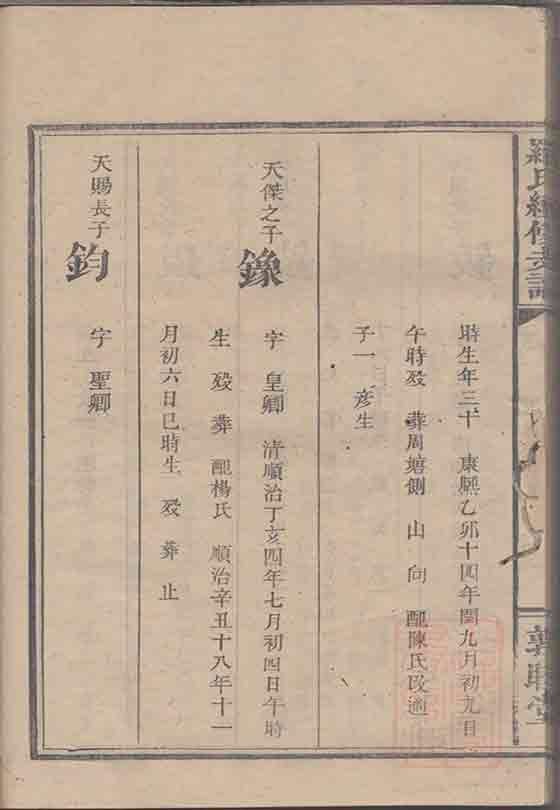 羅氏續修支譜
敦睦堂
時生年三十 康熙乙卯十四年閏九月初九日
午時歿 葬周塘側 山 向 配陳氏改適
子一 彥生
天傑之子
鎵
字 皇卿 清順治丁亥四年七月初四日午時
生 歿 葬 配楊氏 順治辛丑十八年十一
月初六日巳時生 歿 葬 止
天賜長子
鈞
字 聖卿